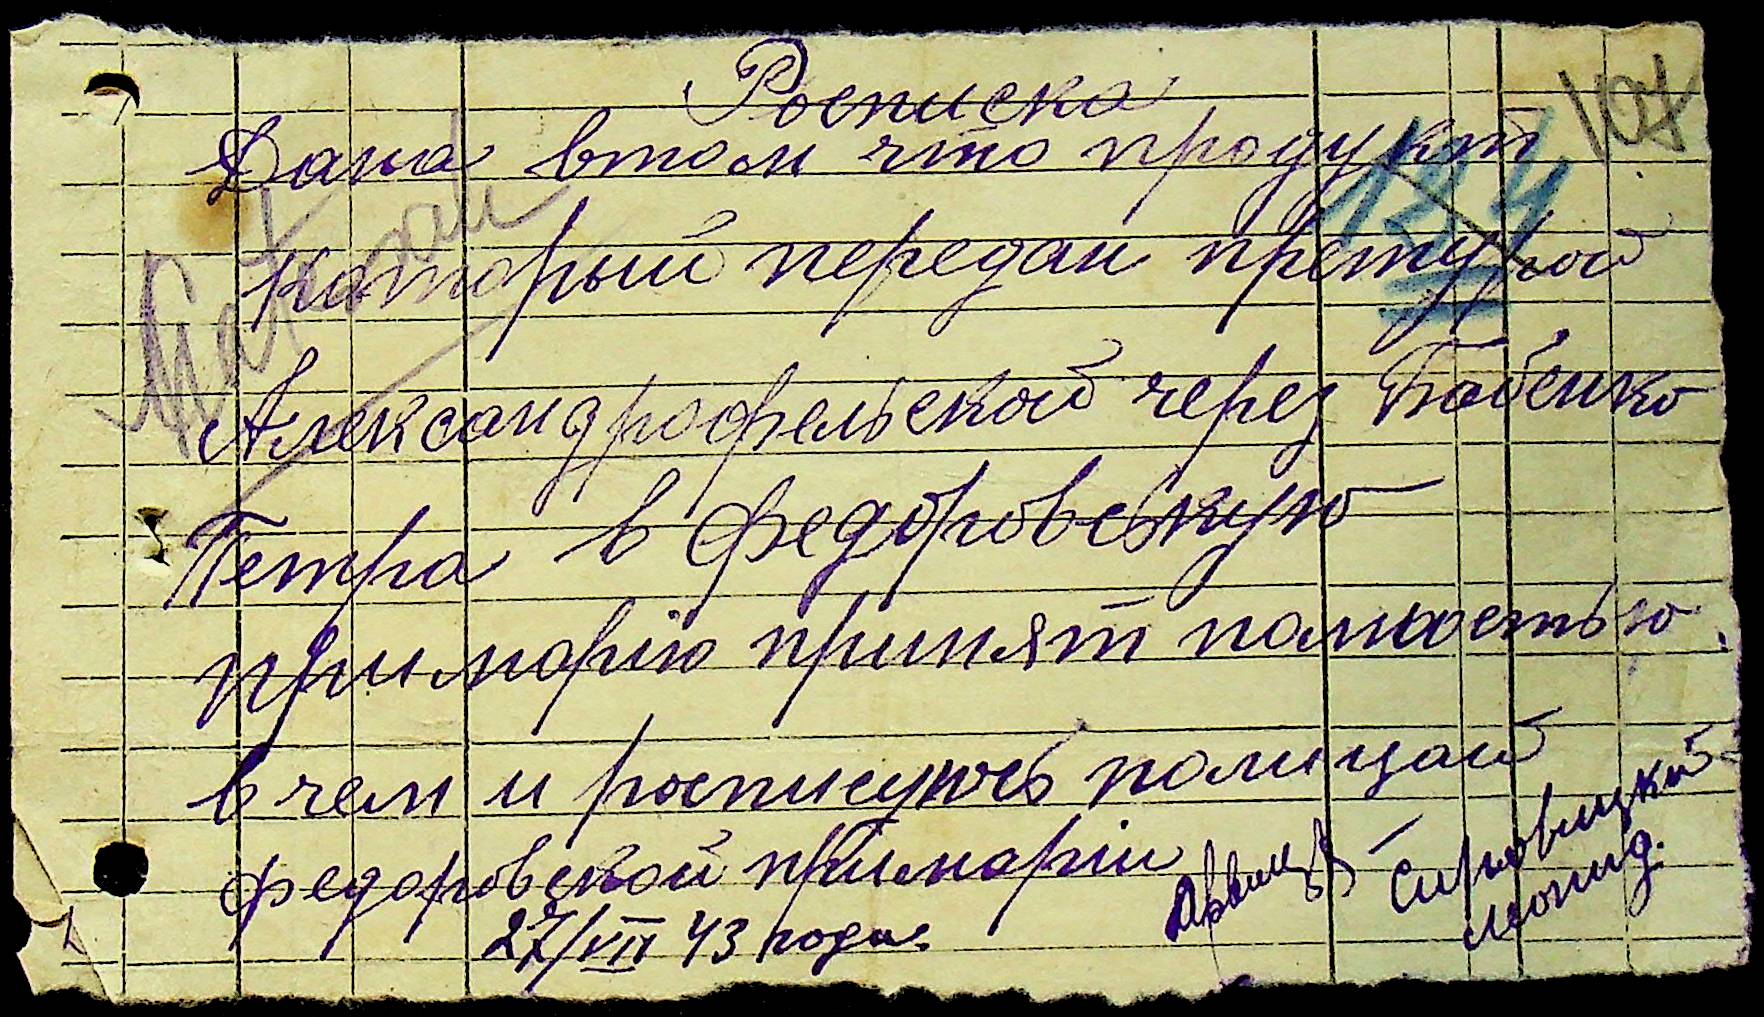 Росписка
107
Дана втом что продукт
124
который передан претурой
Александрофельской через Бабенко
Петра в Федоровскую
примарію принят полностью.
в чем и росписуюсь полицай
федоровской примаріи
27/VII 43 года.
Сыровицкий
Леонид.